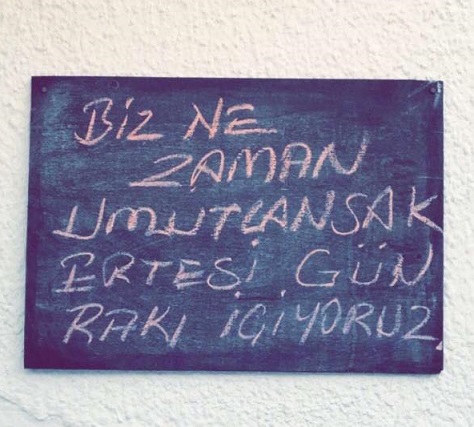 BİZ NE
ZAMAN
UMUTLANSAK
ERTESİ GÜN
RAKI İÇİYORUZ.